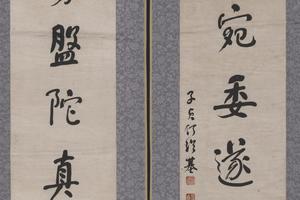 盤陀真
宛委遂
子貞何紹基